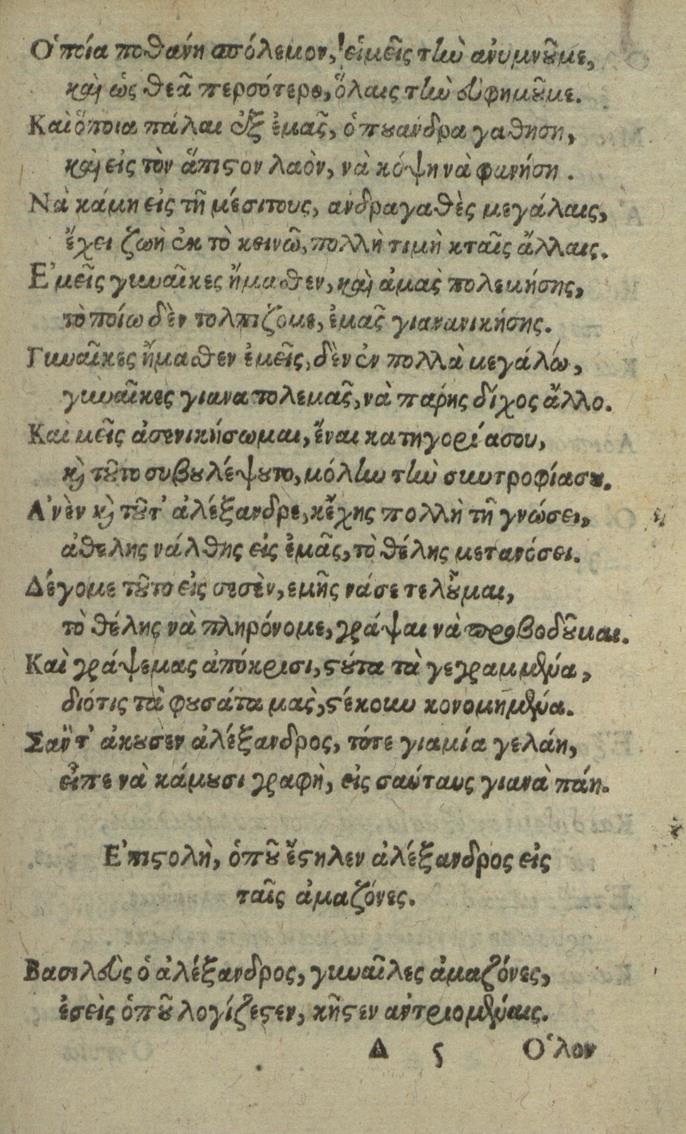 Ὁποία ποθάνη απόλεμον, ἐιμεῖς τὴν ανυμνοῦμε,
καὶ ὡς θεᾶ περσότερο, ὅλαις τὴν ευφημοῦμε.
Καὶ ὅποια πάλαι ἐξ ἐμᾶς, ὁπουανδρα γαθηση,
καὶ εἰς τὸν ἄπιστον λαὸν, νὰ κόψη νὰ φανήση.
Νὰ κάμη εἰς τῆ μέσιτους, ανδραγαθὲς μεγάλαις,
ἔχει ζωὴ ἐκ τὸ κεινῶ, πολλὴ τιμὴ κταῖς ἄλλαις.
Ἐμεῖς γυναῖκες ἤμαθεν, καὶ ἀμας πολεμήσης,
τὸ ποίω δὲν τολπίζομε, ἐμᾶς γιανανικήσης.
Γυναῖκες ἤμαθεν ἐμεῖς, δὲν ἐν πολλὰ μεγάλω,
γυναῖκες γιανα πολεμᾶς, νὰ πάρης δίχος ἄλλο.
Καὶ μεῖς ἀσενικήσωμαι, ἔναι κατηγορίασου,
καὶ τοῦτο συβουλέψουτο, μόλην τὴν σιωτροφίασου.
Ἀνὲν καὶ τοῦτ' ἀλέξανδρε, κἔχης πολλὴ τῆ γνώσει,
ἀθελης νάλθης εἰς ἐμᾶς, τὸ θέλης μετανόσει.
Δέγομε τοῦτο εἰς σεσὲν, εμῆς νάσε τελοῦμαι,
τὸ θέλης νὰ πληρόνομε, γράψαι νὰ προβοδοῦμαι.
Καὶ γράψεμας ἀπόκρισι, στοῦτα τὰ γεγραμμένα,
διότις τὰ φουσάτα μας, στέκουν κονομημένα.
Σαντ' ἀκουσεν ἀλέξανδρος, τότε γιαμία γελάη,
εἶπε νὰ κάμουσι γραφὴ, εἰς σαύταυς γιανὰ πάη.
Ἐπιστολὴ, ὁποῦ ἔστηλεν ἀλέξανδρος εἰς
ταῖς ἀμαζόνες.
Βασιλεὺς ὁ ἀλέξανδρος, γυναῖλες ἀμαζόνες,
ἐσεὶς ὁποῦ λογίζεστεν, κῆστεν αντριομέναις.
Δ ς Ὅλον